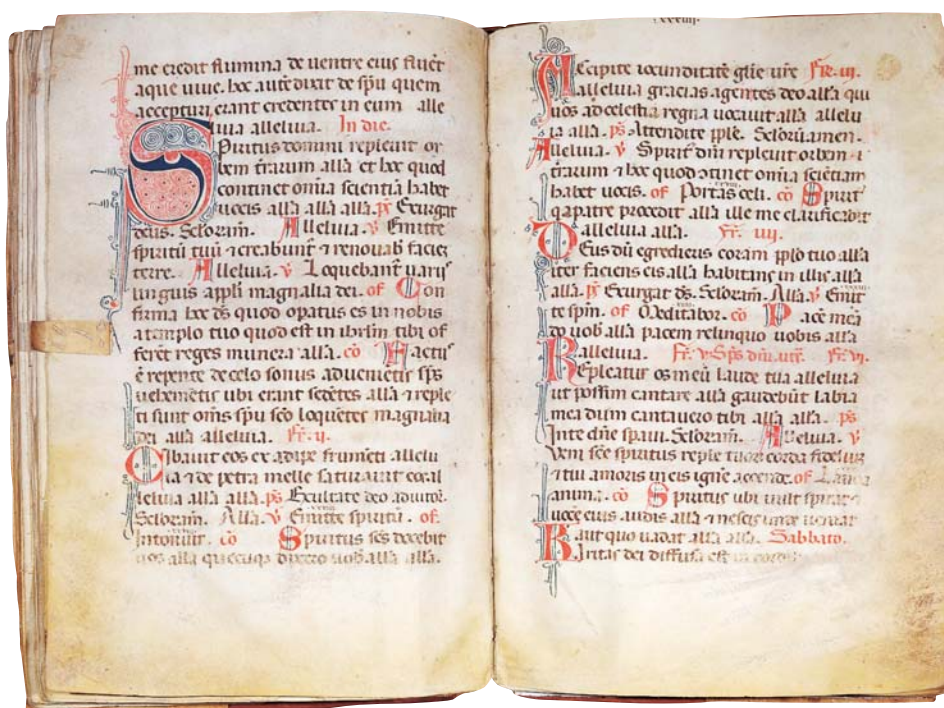 me credit flumina de ventre eius fluēt
aque viue. hoc autē dixit de spū quem
accepturi erant credentes in eum alle
luia alleluia. In die.
Spiritus domini repleuit or
bem t̄rarum alla et hoc quod
continet om̄ia scientiā habet
uocis alla alla alla. p̄s Exurgat
deus. Seloram. Alleluia. v Emitte
spiritū tuū ⁊ creabunt̄ ⁊ renouab faciē
terre. Alleluia. v Loquebant̄ uarijs
linguis apl̄i magnalia dei. of Con
firma hoc d̄s quod opatus es in nobis
a templo tuo quod est in ihrlm̄ tibi of
ferēt reges munera alla. cō Factus
ē repente de celo sonus aduenietis sp̄s
uehemētis ubi erant sedētes alla ⁊ reple
ti sunt om̄s sp̄u sc̄o loquētes magnalia
dei alla alleluia. Fr̄. ii.
Cibauit eos ex adipe frumēti allelu
ia ⁊ de petra melle saturauit eos al
leluia alla alla. p̄s Exultate deo adiutor.
Seloram. Alla. v Emitte spiritū. of.
Intonuit. cō Spiritus sc̄s docebit
uos alla quecūq dixero uob alla alla.
xxxiiii.
Accipite iocunditatē glīe ur̄e Fr̄. iii.
alleluia gracias agentes deo alla qui
uos ad celestia regna uocauit alla allelu
ia alla. p̄s Attendite pple. Selorū amen.
Alleluia. v Spirit̄ dn̄i repleuit orbem
t̄rarum ⁊ hoc quod ↄtinet om̄ia sciētiam
habet uocis. of Portas celi. cō Spirit̄
q a patre procedit alla ille me clarificabit
alleluia alla. Fr̄. iiii.
Deus dū egredieris coram pp̄lo tuo alla
iter faciens eis alla habitans in illis alla
alla. p̄s Exurgat d̄s. Seloram. Alla. v Emit
te spm̄. of Meditabor. cō Pacē meā
do uob alla pacem relinquo uobis alla
alleluia. Fr̄. v Sp̄s dn̄i ut Fr̄. vi.
Repleatur os meū laude tua alleluia
ut possim cantare alla gaudebūt labia
mea dum cantauero tibi alla alla. p̄s
In te dn̄e spaui. Seloram. Alleluia. v
Veni sc̄e spiritus reple tuor̄ corda fideliū
⁊ tui amoris in eis ignē accende. of Lauda
anima. cō Spiritus ubi uult spirat ⁊
uocē eius audis alla ⁊ nescis unde ueniat
aut quo uadat alla alla. Sabbato.
Karitas dei diffusa est in cordib